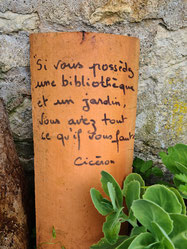 Si vous possédez
une bibliothèque
et un jardin,
vous avez tout
ce qu'il vous faut
Cicéron